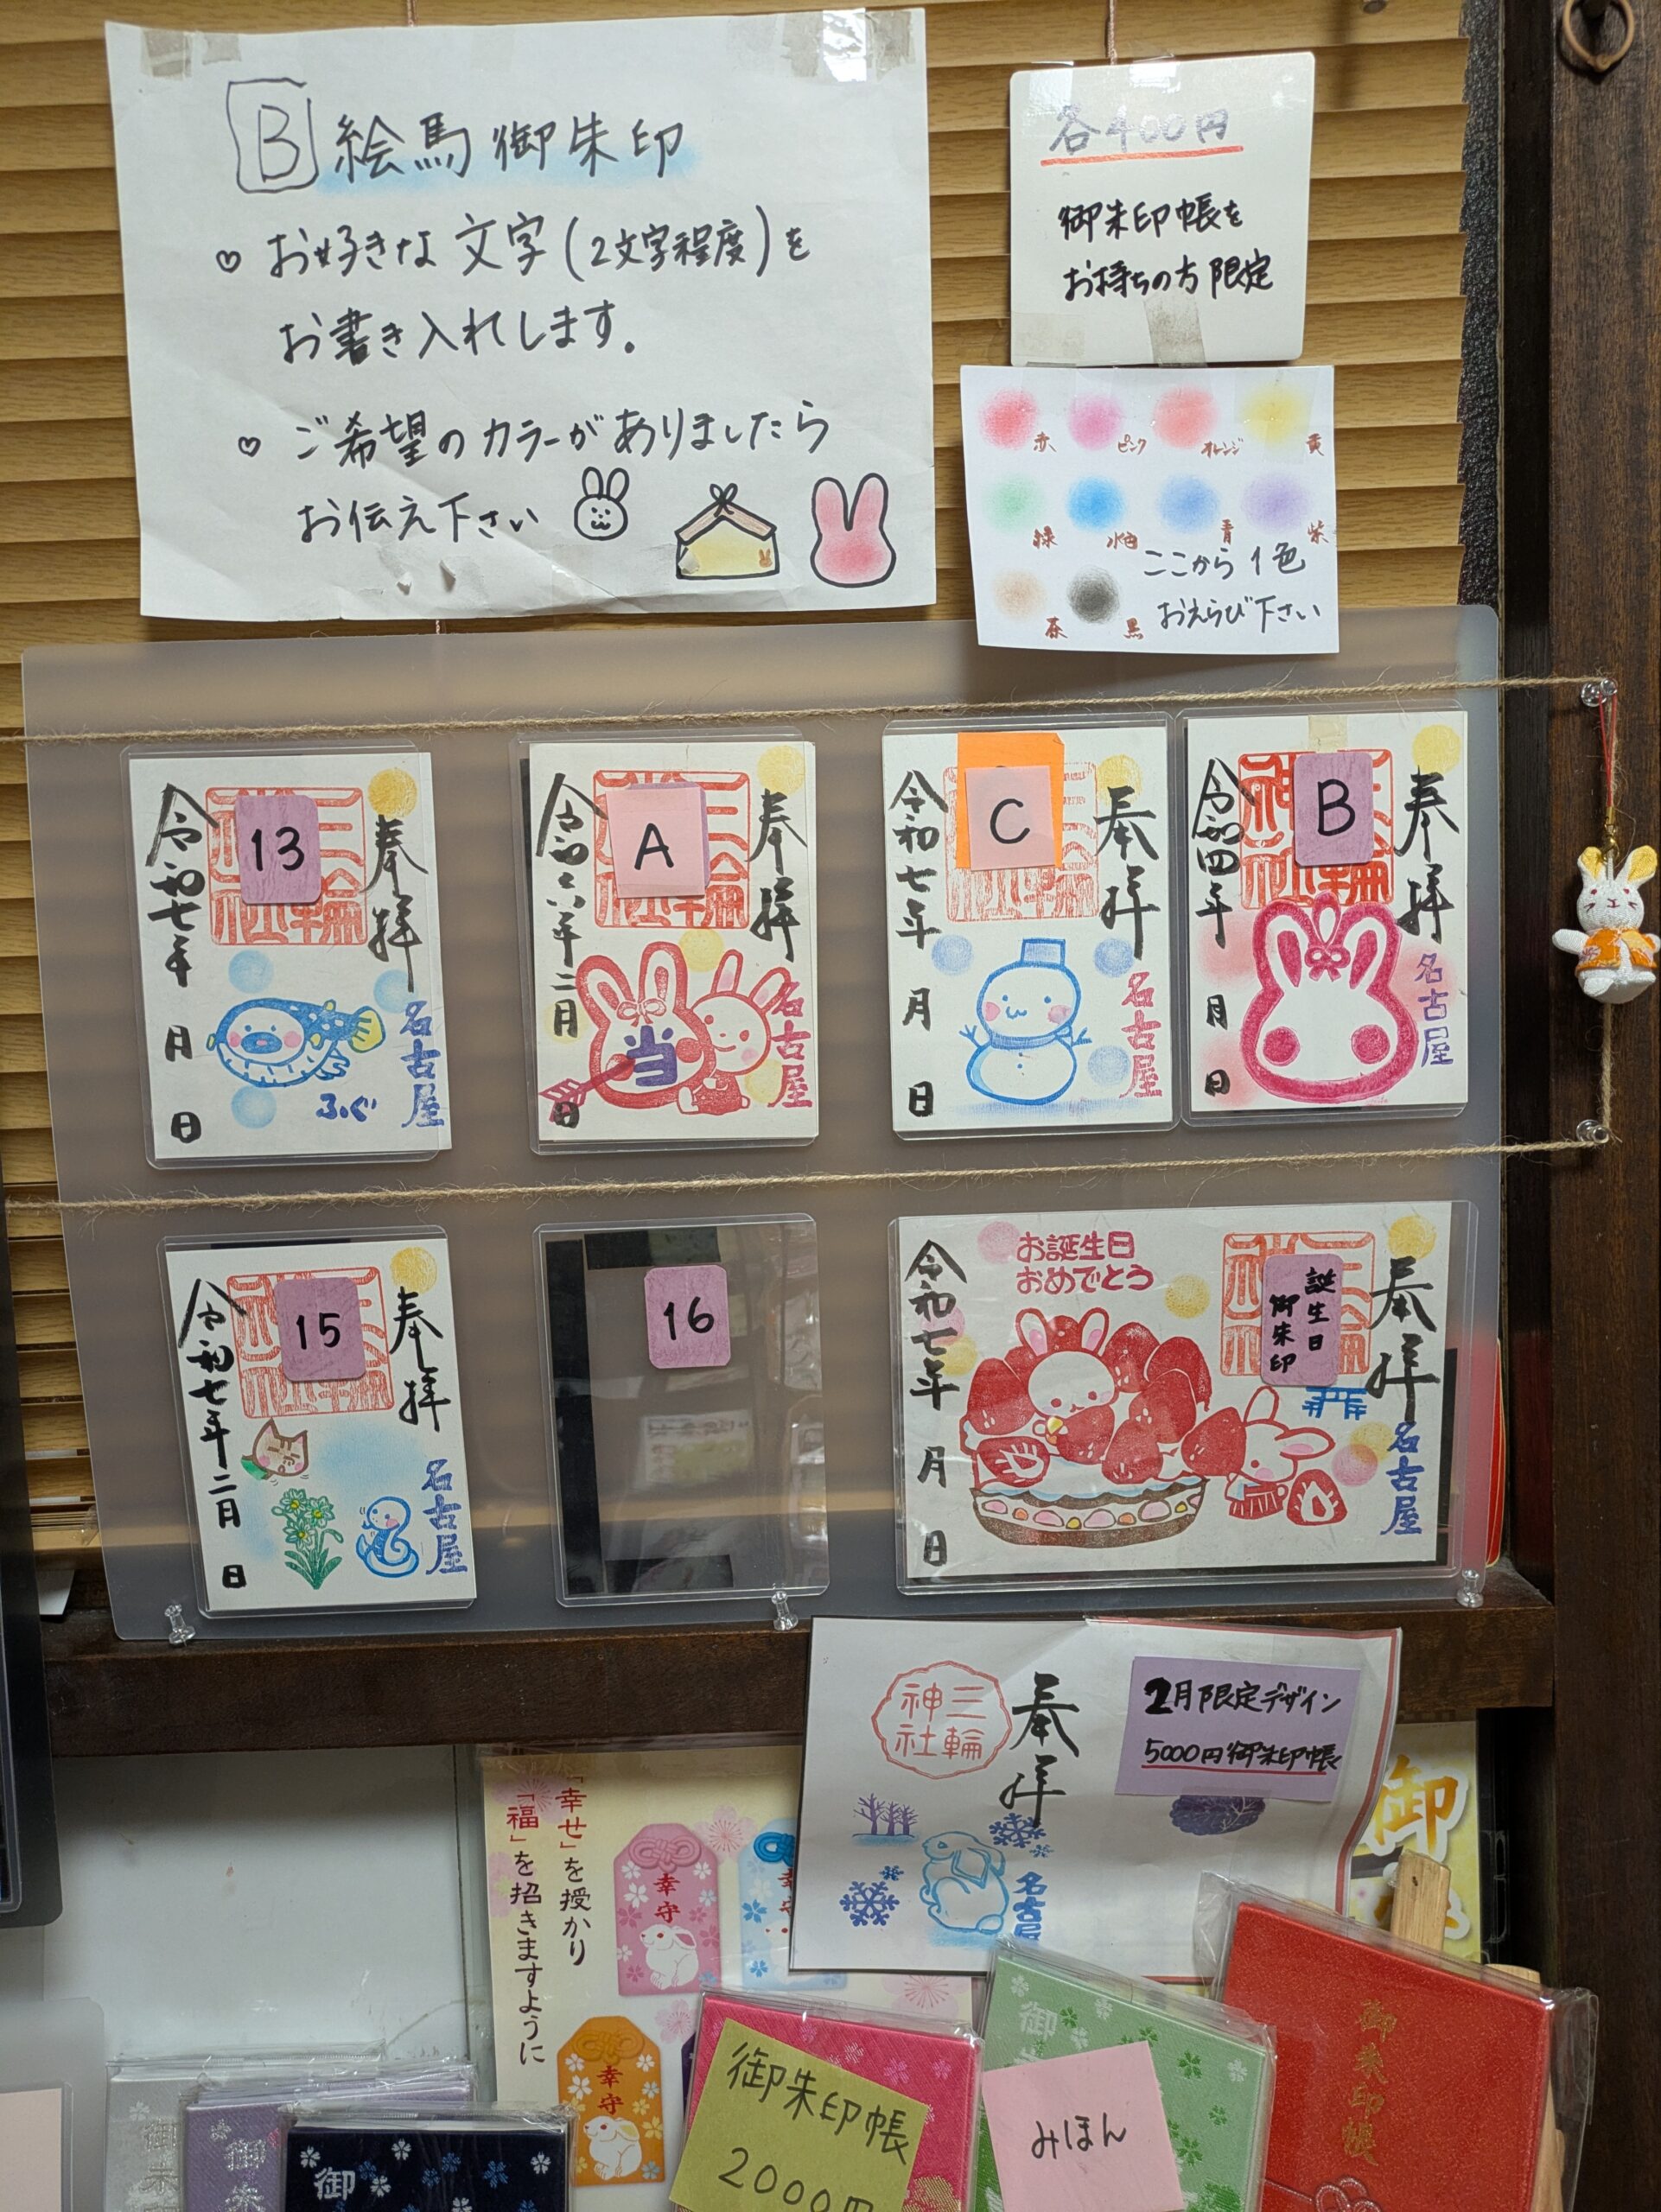 B 絵馬御朱印
♡ お好きな文字(2文字程度)を
お書き入れします。
♡ ご希望のカラーがありましたら
お伝え下さい
各400円
御朱印帳を
お持ちの方限定
赤 ピンク オレンジ 黄
緑 水色 青 紫
茶 黒
ここから1色
おえらび下さい
奉拝
13
令和七年 月 日
名古屋
ふぐ
奉拝
A
令和六年二月 日
名古屋
当
奉拝
C
令和七年 月 日
名古屋
奉拝
B
令和四年 月 日
名古屋
奉拝
15
令和七年二月 日
名古屋
16
奉拝
誕生日
御朱印
お誕生日
おめでとう
令和七年 月 日
名古屋
2月限定デザイン
5000円御朱印帳
奉拝
三輪
神社
名古屋
「幸せ」を授かり
「福」を招きますように
幸守
幸守
御
御朱印帳
2000円
御
みほん
御朱印帳
御
御
御